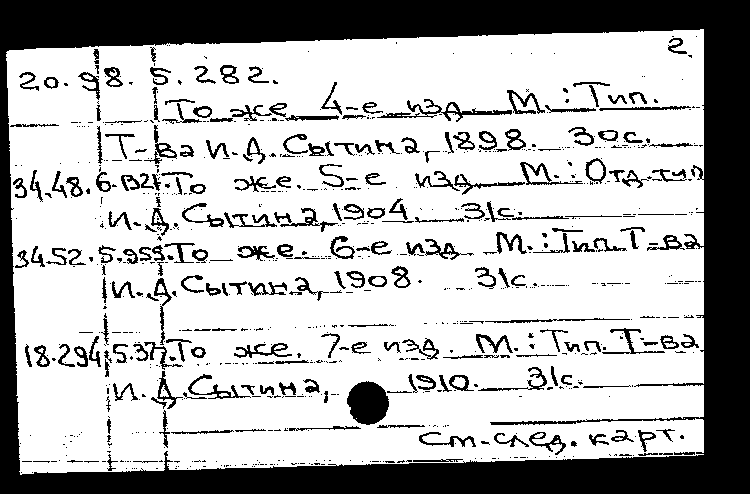 2
20.98.5.282.
То же. 4-е изд. М.: Тип.
Т-ва И.Д. Сытина, 1898. 30с.
34.48.6.1321. То же. 5-е изд. М.: Отд. тип
И.Д. Сытина, 1904. 31с.
34.52.5.959. То же. 6-е изд М.: Тип. Т-ва
И.Д. Сытина, 1908. 31с.
18.294.5.377. То же. 7-е изд. М.: Тип. Т-ва
И.Д. Сытина, 1910. 31с.
См. след. карт.